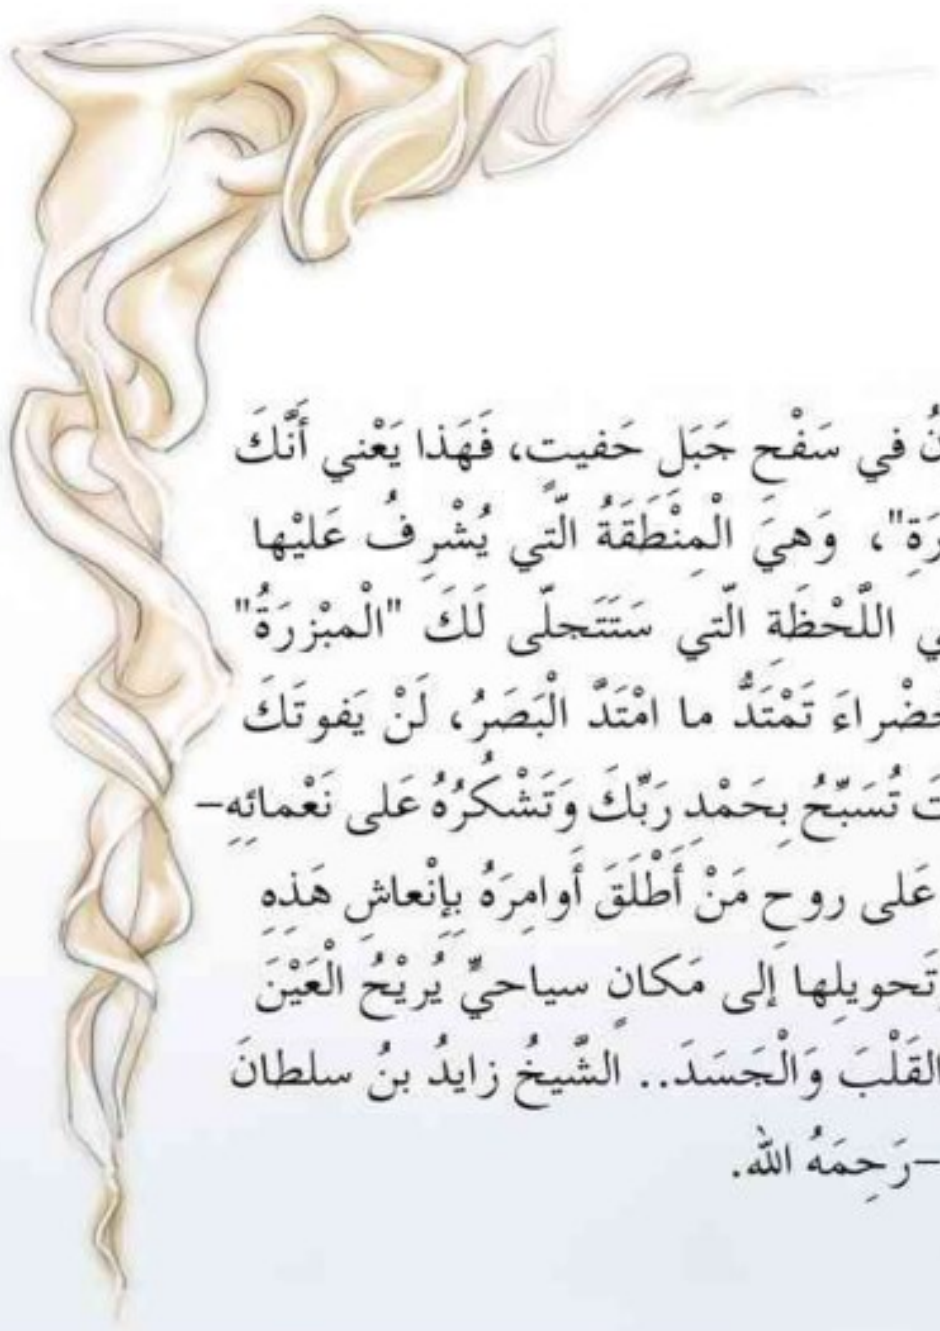 في سَفْحِ جَبَلِ حَفيتٍ، فَهَذا يَعْني أَنَّكَ
وَهيَ الْمِنْطَقَةُ الّتي يُشْرِفُ عَلَيْها
اللَّحْظَةِ الّتي سَتَتَجلّى لَكَ "الْمبْزرَةُ"
تَمْتَدُّ ما امْتَدَّ الْبَصَرُ، لَنْ يَفوتَكَ
تُسَبّحُ بِحَمْدِ رَبِّكَ وَتَشْكُرُهُ عَلى نَعْمائِهِ–
عَلى روحِ مَنْ أَطْلَقَ أَوامِرَهُ بِإِنْعاشِ هَذِهِ
تَحويلِها إلى مَكانٍ سياحيٍّ يُريْحُ الْعَيْنَ
القَلْبَ وَالْجَسَدَ.. الشَّيخُ زايدُ بنُ سلطانَ
–رَحِمَهُ اللّه.